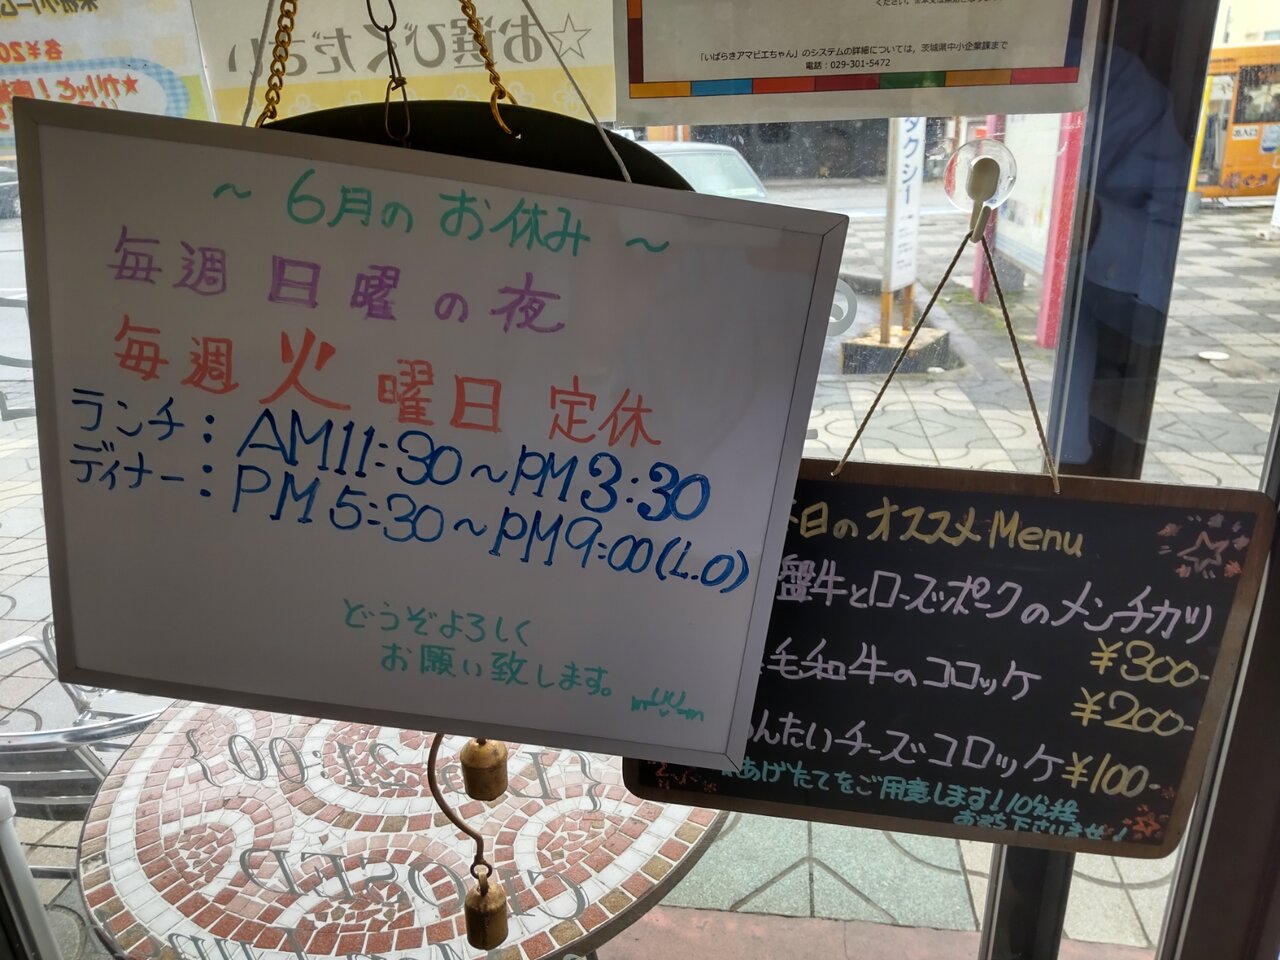 お選びください
各¥20
「いばらきアマビエちゃん」のシステムの詳細については，茨城県中小企業課まで
電話：029-301-5472
タクシー
～ 6月の お休み ～
毎週 日曜の夜
毎週 火曜日 定休
ランチ：AM11:30～PM3:30
ディナー：PM5:30～PM9:00(L.O)
どうぞよろしく
お願い致します。
日のオススメMenu
盤牛とローズポークのメンチカツ
¥300-
毛和牛のコロッケ
¥200-
んたいチーズコロッケ ¥100-
あげたてをご用意します！10分ほど
お待ち下さいませ！
CLOSED